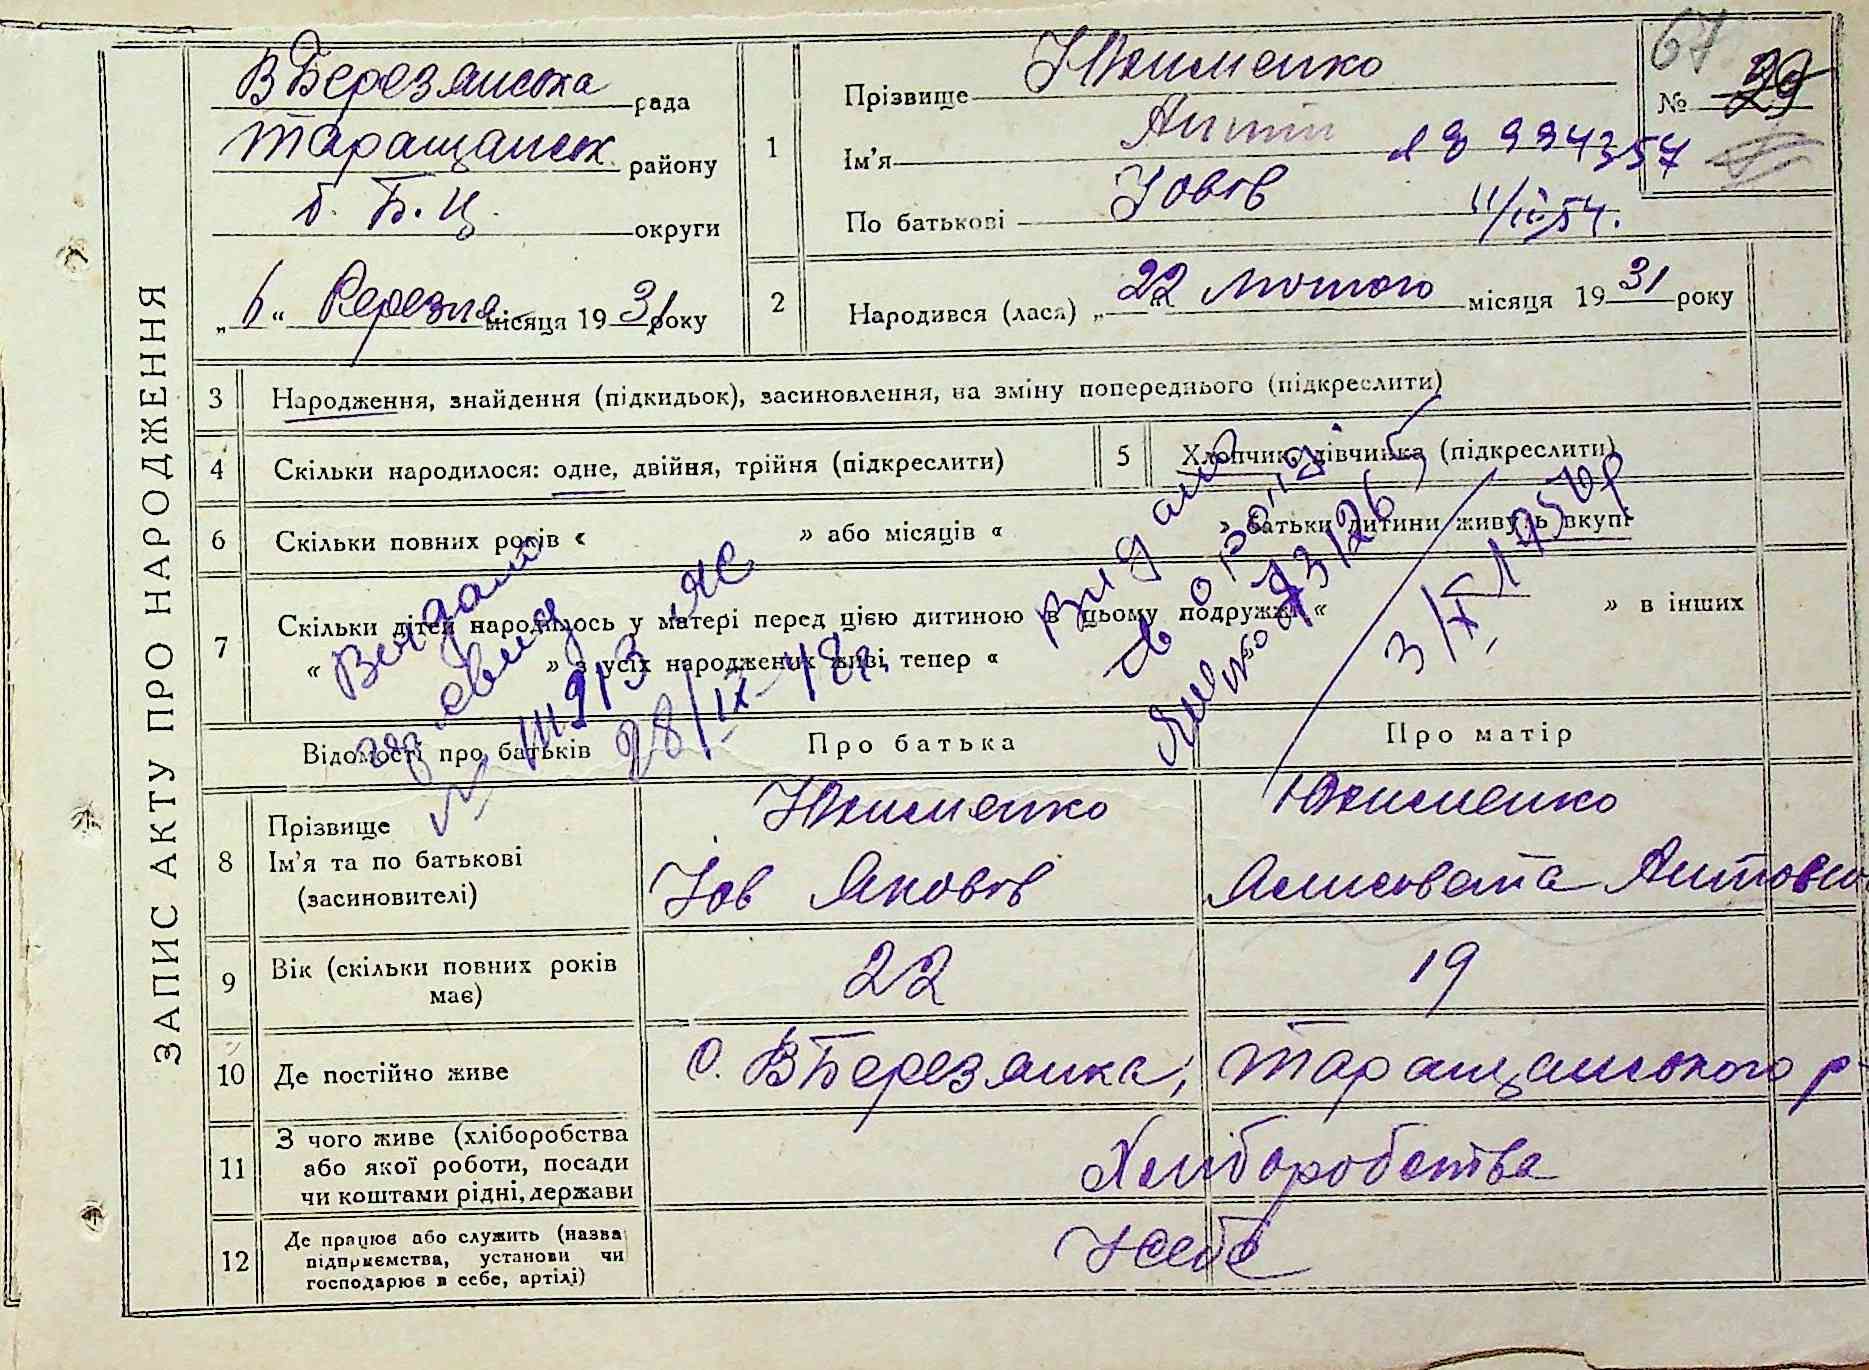 ЗАПИС АКТУ ПРО НАРОДЖЕННЯ
В Березянська рада
Таращанськ. району
б. Б.Ц. округи
„ 6 “ Березня місяця 19 31 року
67
№ 29
1
Прізвище Юхименко
Ім'я Антін
По батькові Йовів
11/III 54.
2
Народився (лася) „ 22 “ лютого місяця 19 31 року
3 Народження, знайдення (підкидьок), засиновлення, на зміну попереднього (підкреслити)
4 Скільки народилося: одне, двійня, трійня (підкреслити)
5 Хлопчик, дівчинка (підкреслити)
6 Скільки повних років « » або місяців « » батьки дитини живуть вкупі
7 Скільки дітей народилось у матері перед цією дитиною в цьому подружжі « » в інших
« » з усіх народжених живі тепер «
28/IX-48р.
Відомості про батьків
Про батька
Про матір
8 Прізвище
Ім'я та по батькові
(засиновителі)
Юхименко
Йов Яковів
Юхименко
Ялисовета Антовно
9 Вік (скільки повних років має)
22
19
10 Де постійно живе
с. В Березянка, Таращанського р-
11 З чого живе (хліборобства
або якої роботи, посади
чи коштами рідні, держави
Хліборобства
12 Де працює або служить (назва
підприємства, установи чи
господарює в себе, артілі)
У себе